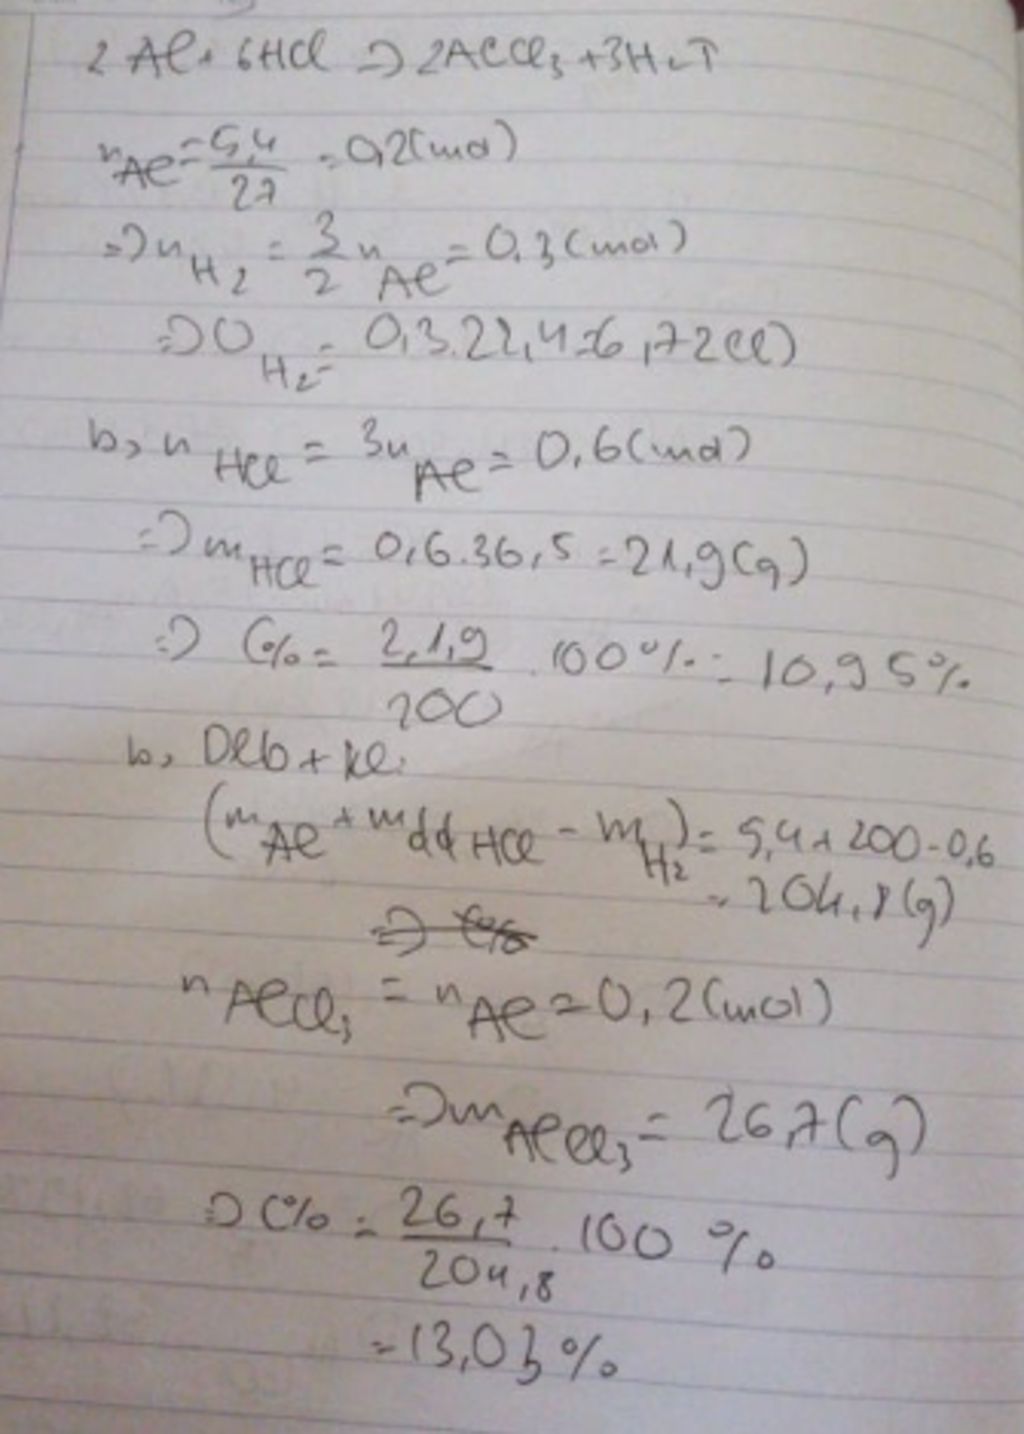 2Al + 6HCl => 2AlCl₃ + 3H₂↑
nAl = 5,4/27 = 0,2 (mol)
=> nH₂ = 3/2 nAl = 0,3 (mol)
=> VH₂ = 0,3.22,4 = 6,72 (l)
b, nHCl = 3nAl = 0,6 (mol)
=> mHCl = 0,6.36,5 = 21,9 (g)
=> C% = 21,9/200 . 100% = 10,95%
b,
(mAl + mddHCl - mH₂) = 5,4 + 200 - 0,6
= 204,8 (g)
nAlCl₃ = nAl = 0,2 (mol)
=> mAlCl₃ = 26,7 (g)
=> C% = 26,7/204,8 . 100%
= 13,03%